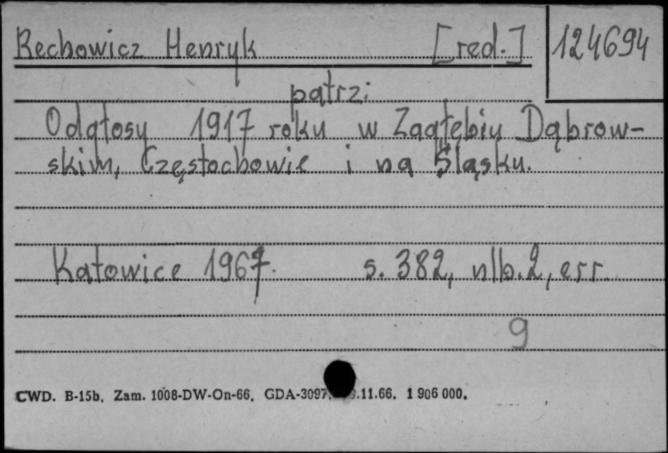 Rechowicz Henryk [red.] 124694
patrz:
Odgłosy 1917 roku w Zagłębiu Dąbrow-
skim, Częstochowie i na Śląsku.
Katowice 1967. s. 382, nlb. 2, err.
9
CWD. B-15b. Zam. 1008-DW-On-66. GDA-3097. .11.66. 1 906 000.